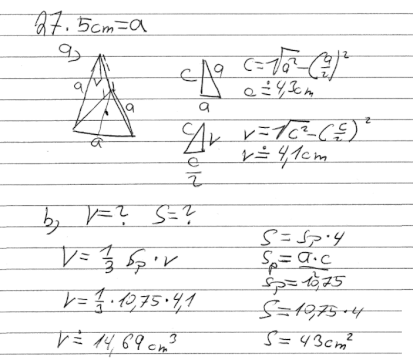 27. 5cm=a
a)
a
v
a
a
c a
a
c=√a²-(a/2)²
c≐4,3cm
c v
c/2
v=√c²-(c/2)²
v≐4,1cm
b) V=? S=?
V=1/3 Sp·v
V=1/3·10,75·4,1
V≐14,69cm³
S=Sp·4
Sp=a·c/2
Sp=10,75
S=10,75·4
S=43cm²